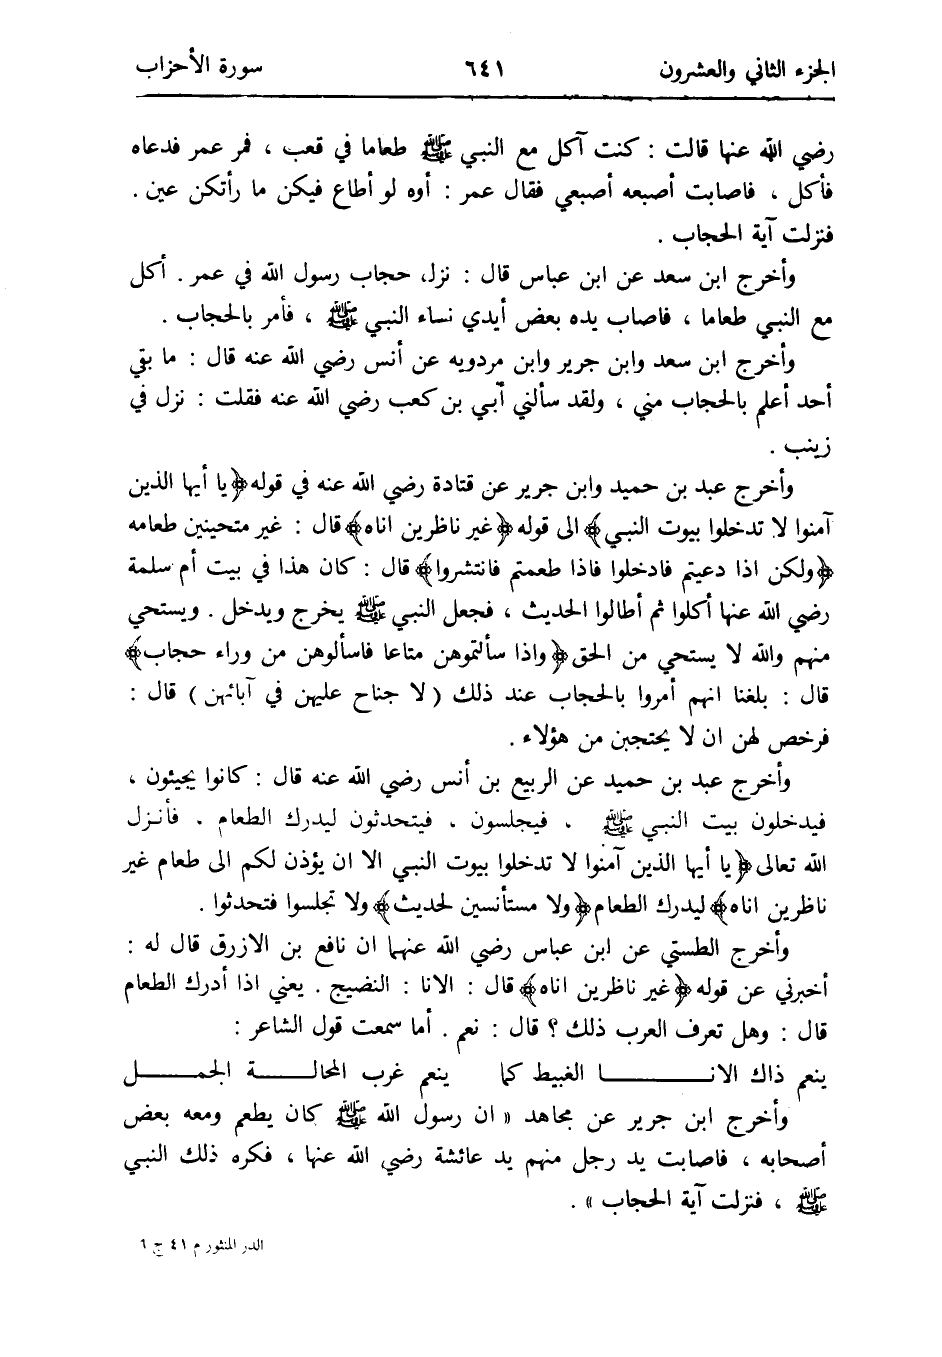 الجزء الثاني والعشرون ٦٤١ سورة الأحزاب
رضي الله عنها قالت : كنت آكل مع النبي ﷺ طعاما في قعب ، فمر عمر فدعاه
فأكل ، فاصابت أصبعه أصبعي فقال عمر : أوه لو أطاع فيكن ما رأتكن عين .
فنزلت آية الحجاب .
وأخرج ابن سعد عن ابن عباس قال : نزل، حجاب رسول الله في عمر . أكل
مع النبي طعاما ، فاصاب يده بعض أيدي نساء النبي ﷺ ، فأمر بالحجاب .
وأخرج ابن سعد وابن جرير وابن مردويه عن أنس رضي الله عنه قال : ما بقي
أحد أعلم بالحجاب مني ، ولقد سألني أبي بن كعب رضي الله عنه فقلت : نزل في
زينب .
وأخرج عبد بن حميد وابن جرير عن قتادة رضي الله عنه في قوله ﴿يا أيها الذين
آمنوا لا تدخلوا بيوت النبي﴾ الى قوله ﴿غير ناظرين اناه﴾ قال : غير متحينين طعامه
﴿ولكن اذا دعيتم فادخلوا فاذا طعمتم فانتشروا﴾ قال : كان هذا في بيت أم سلمة
رضي الله عنها أكلوا ثم أطالوا الحديث ، فجعل النبي ﷺ يخرج ويدخل . ويستحي
منهم والله لا يستحي من الحق ﴿واذا سألتموهن متاعا فاسألوهن من وراء حجاب﴾
قال : بلغنا انهم أمروا بالحجاب عند ذلك ( لا جناح عليهن في آبائهن ) قال :
فرخص لهن ان لا يحتجبن من هؤلاء .
وأخرج عبد بن حميد عن الربيع بن أنس رضي الله عنه قال : كانوا يجيئون ،
فيدخلون بيت النبي ﷺ ، فيجلسون ، فيتحدثون ليدرك الطعام ، فأنزل
الله تعالى ﴿يا أيها الذين آمنوا لا تدخلوا بيوت النبي الا ان يؤذن لكم الى طعام غير
ناظرين اناه﴾ ليدرك الطعام ﴿ولا مستأنسين لحديث﴾ ولا تجلسوا فتحدثوا .
وأخرج الطستي عن ابن عباس رضي الله عنهما ان نافع بن الازرق قال له :
أخبرني عن قوله ﴿غير ناظرين اناه﴾ قال : الانا : النضيج . يعني اذا أدرك الطعام
قال : وهل تعرف العرب ذلك ؟ قال : نعم . أما سمعت قول الشاعر :
ينعم ذاك الانـــــا الغبيط كما ينعم غرب المحالـــة الجمـــل
وأخرج ابن جرير عن مجاهد « ان رسول الله ﷺ كان يطعم ومعه بعض
أصحابه ، فاصابت يد رجل منهم يد عائشة رضي الله عنها ، فكره ذلك النبي
ﷺ ، فنزلت آية الحجاب » .
الدر المنثور م ٤١ ج ٦